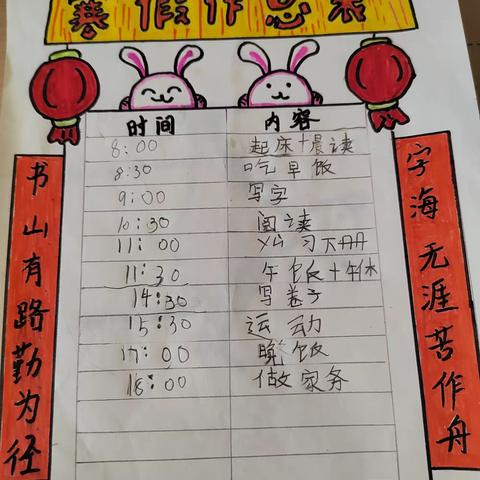 寒假作息表
时间 内容
8:00 起床+晨读
8:30 吃早饭
9:00 写字
10:30 阅读
11:00 练习册
11:30 午饭+午休
14:30 写卷子
15:30 运动
17:00 晚饭
18:00 做家务
书山有路勤为径
字海无涯苦作舟